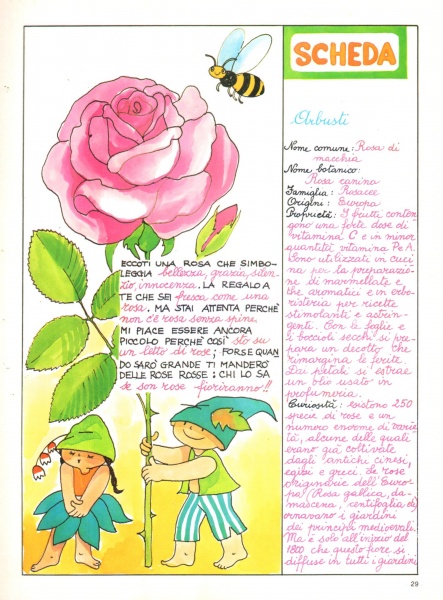 SCHEDA
Arbusti
Nome comune: Rosa di
macchia
Nome botanico:
Rosa canina
Famiglia: Rosacee
Origini: Europa
Proprietà: I frutti conten
gono una forte dose di
vitamina C e in minor
quantità vitamina P e A.
Sono utilizzati in cuci
na per la preparazio
ne di marmellate e
the aromatici e in erbo
risteria per ricette
stimolanti e astrin-
genti. Con le foglie e
i boccioli secchi si pre
para un decotto che
rimargina le ferite.
Dai petali si estrae
un olio usato in
profumeria.
Curiosità: esistono 250
specie di rose e un
numero enorme di varie
tà, alcune delle quali
erano già coltivate
dagli antichi cinesi,
egizi e greci. Le rose
originarie dell'Euro
pa (Rosa gallica, da-
mascena, centifoglia) a
dornavano i giardini
dei principi medioevali.
Ma è solo all'inizio del
1800 che questo fiore si
diffuse in tutti i giardini
ECCOTI UNA ROSA CHE SIMBO-
LEGGIA bellezza, grazia, silen
zio, innocenza. LA REGALO A
TE CHE SEI fresca come una
rosa. MA STAI ATTENTA PERCHÈ
non c'è rosa senza spine.
MI PIACE ESSERE ANCORA
PICCOLO PERCHÈ COSÌ sto su
un letto di rose; FORSE QUAN
DO SARÒ GRANDE TI MANDERÒ
DELLE ROSE ROSSE: CHI LO SA
se son rose fioriranno!!
29